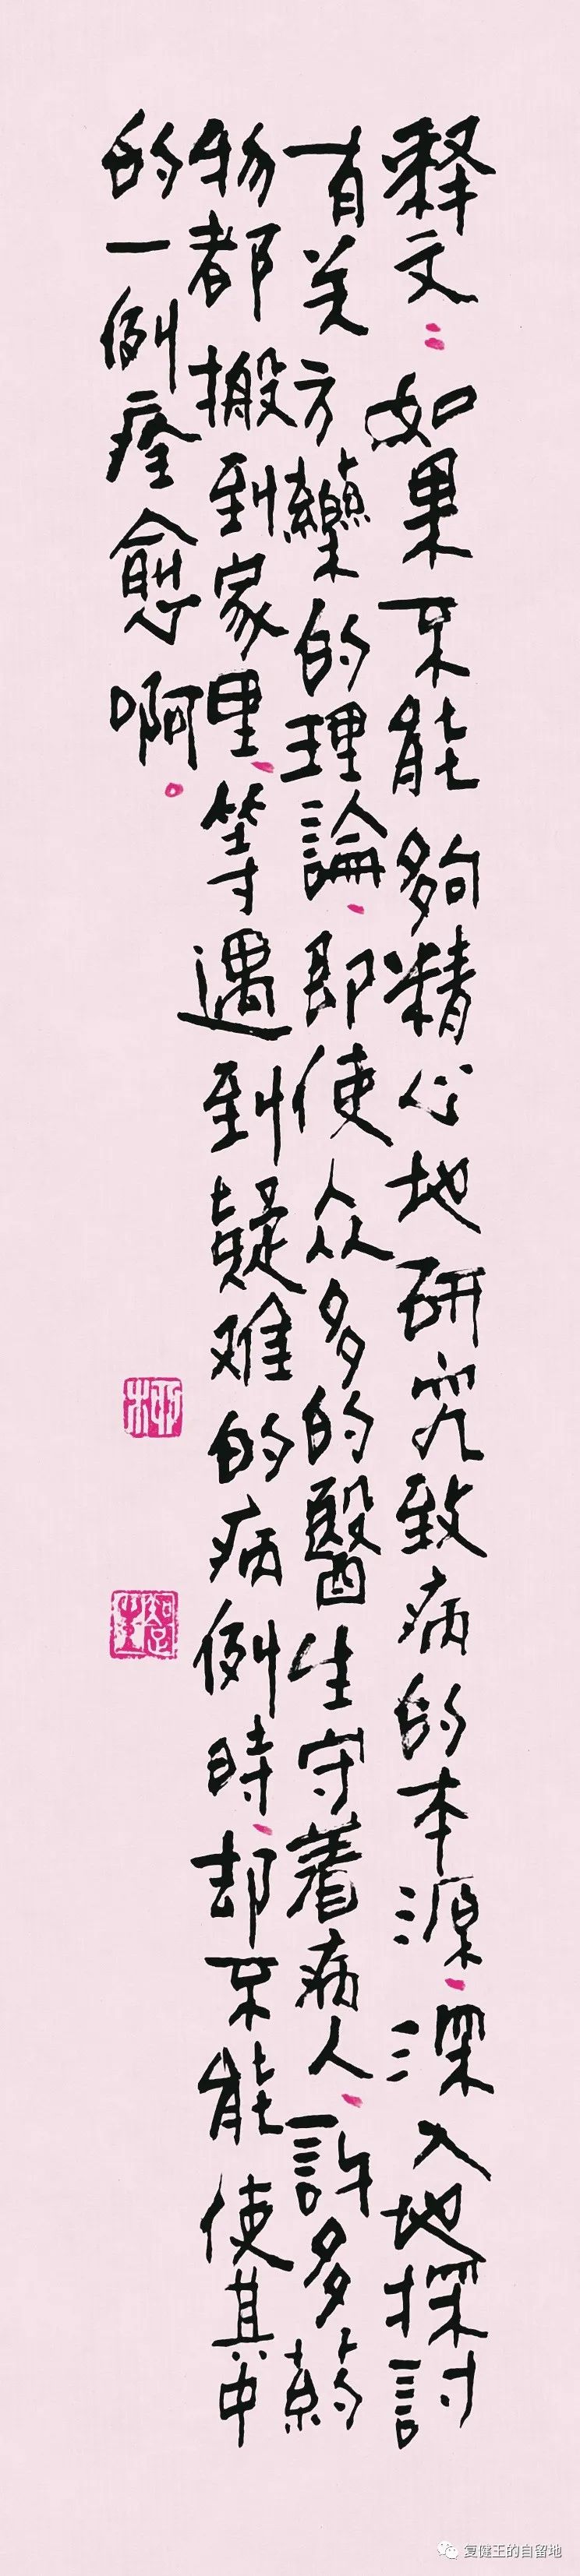 释文：如果不能夠精心地研究致病的本源，深入地探討
有关方藥的理論，即使众多的醫生守着病人，許多葯
物都搬到家里，等遇到疑难的病例時，却不能使其中
的一例痊愈啊。
复健王的自留地